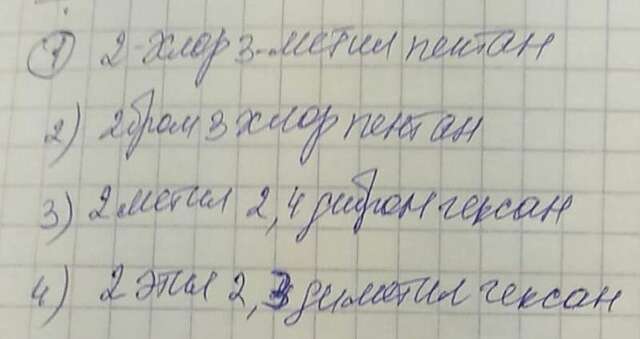 1) 2-хлор 3-метил пентан
2) 2бром 3 хлор пентан
3) 2 метил 2,4 дибром гексан
4) 2 этил 2,3 диметил гексан